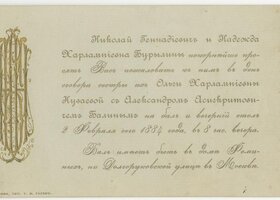 Николай Геннадіевичъ и Надежда
Харлампіевна Бурылины покорнѣйше про-
сятъ Васъ пожаловать къ нимъ въ день
сговора сестры ихъ Ольги Харлампіевны
Куваевой съ Александромъ Асикритови-
чемъ Балинымъ на балъ и вечерній столъ
2 Февраля сего 1884 года, въ 8 час. вечера.
Балъ имѣетъ быть въ домѣ
на Долгоруковской улицѣ въ Москвѣ.